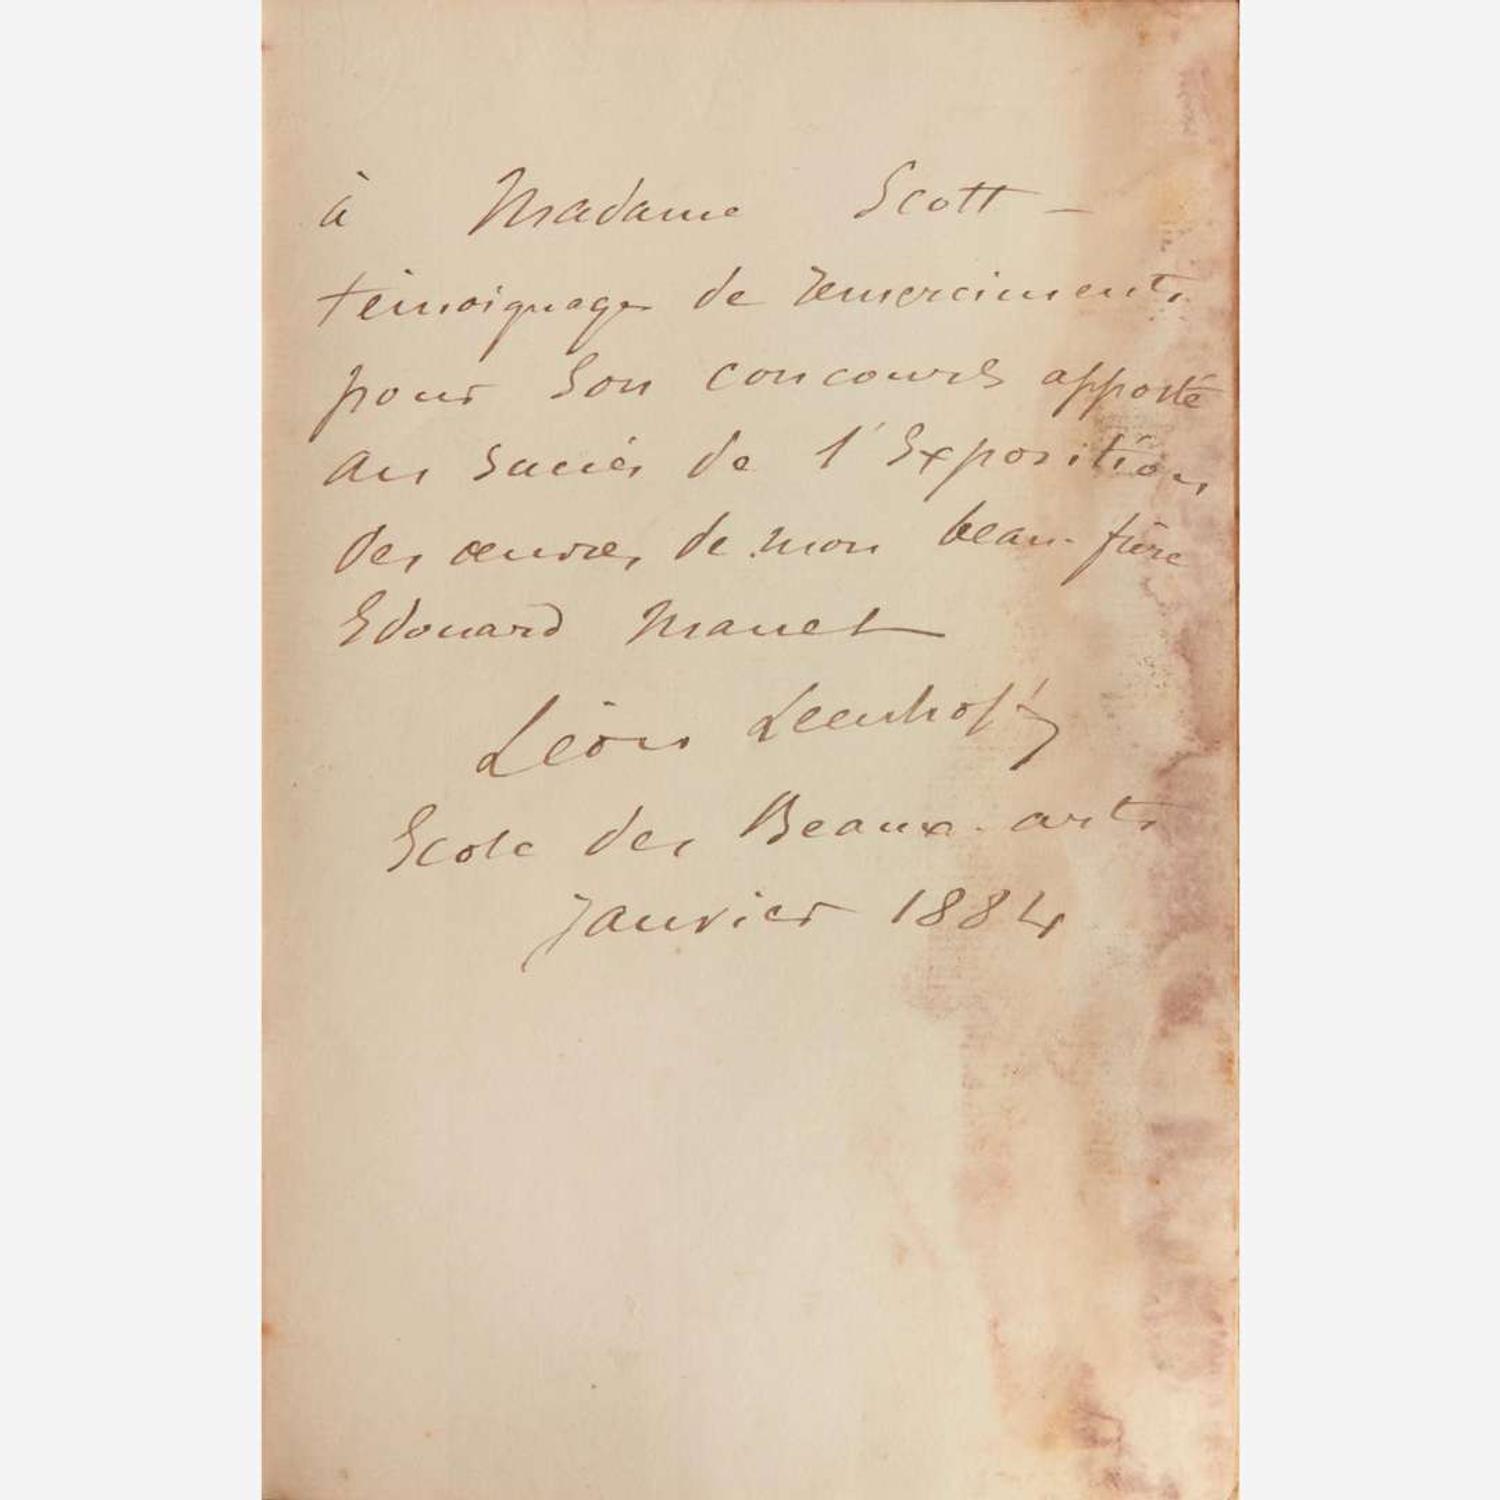 à Madame Scott –
témoignage de remerciments
pour son concours apporté
au succès de l'Exposition
des œuvres de mon beau-frère
Edouard Manet
Léon Leenhoff
Ecole des Beaux-arts
Janvier 1884